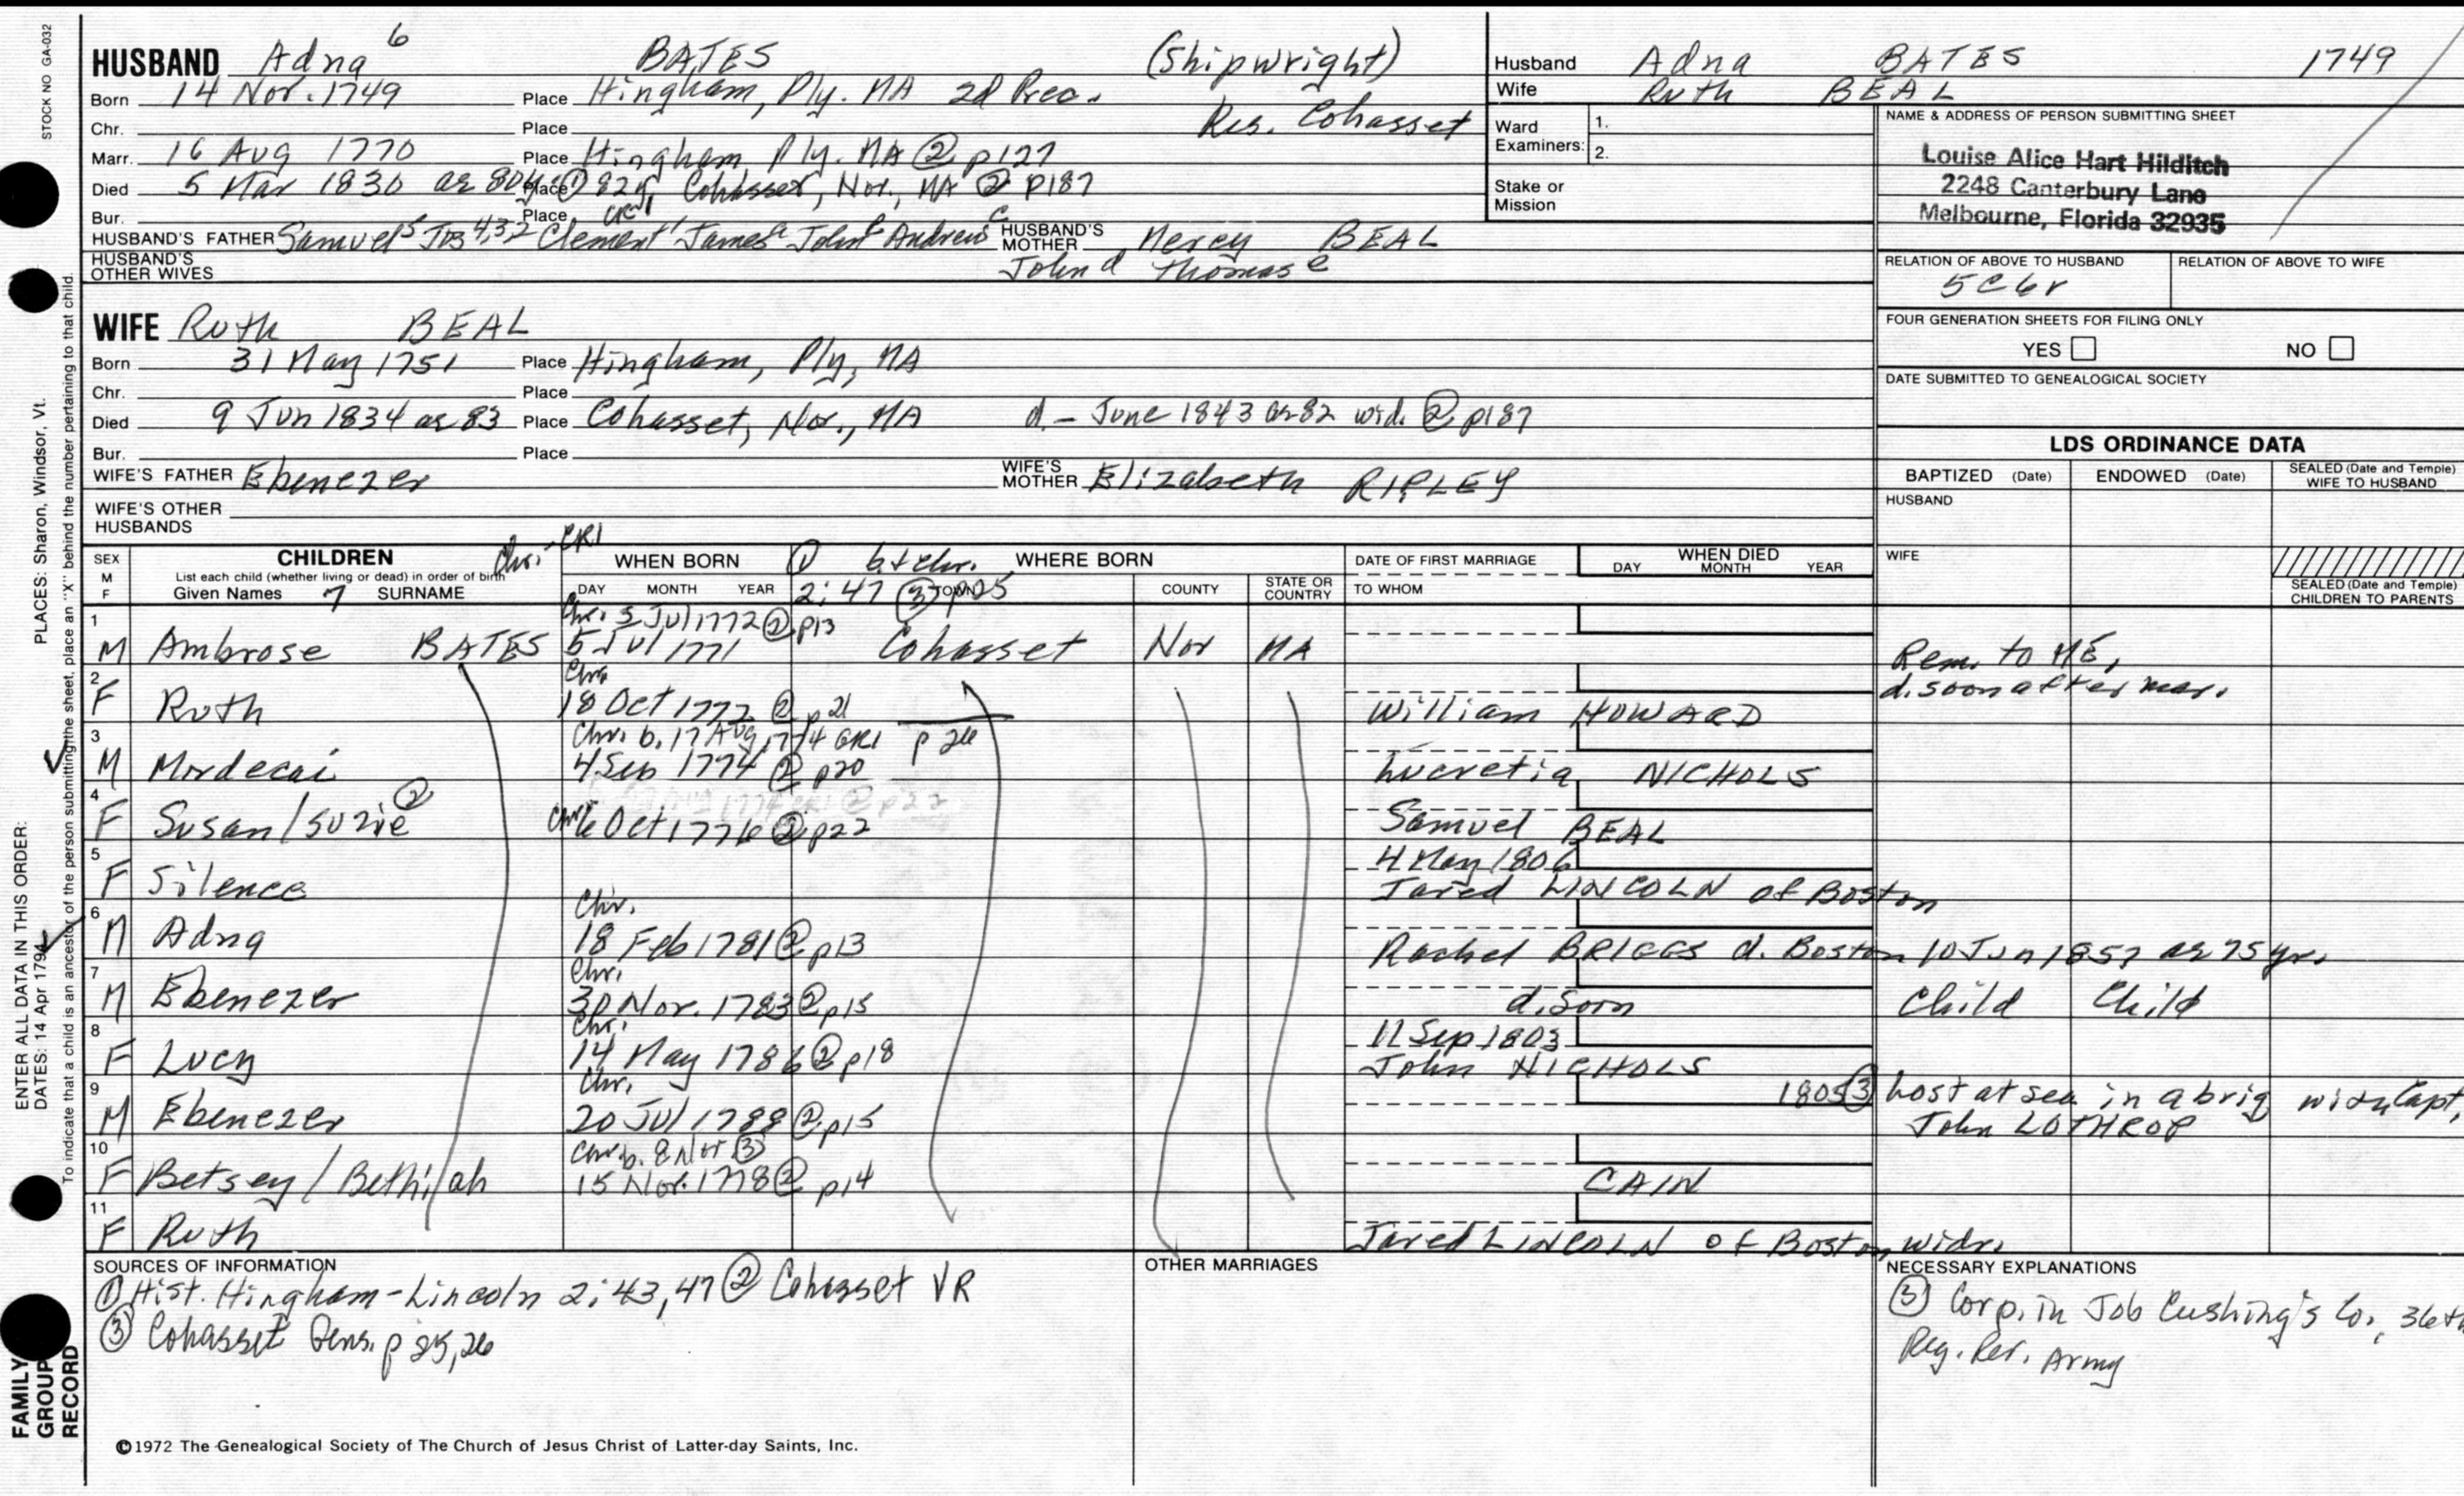 STOCK NO GA-032
HUSBAND Adna 6 BATES (Shipwright)
Born 14 Nov. 1749 Place Hingham, Ply. MA 2d Prec.
Chr. Place Res. Cohasset
Marr. 16 Aug 1770 Place Hingham, Ply. MA ② p127
Died 5 Mar 1830 ae 80y ① Place 82y, Cohasset, Nor., MA ② p187
Bur. Place CR1
HUSBAND'S FATHER Samuel 5 Clement James John Andrew c HUSBAND'S MOTHER Mercy BEAL
HUSBAND'S OTHER WIVES John d Thomas e
WIFE Ruth BEAL
Born 31 May 1751 Place Hingham, Ply, MA
Chr. Place
Died 9 Jun 1834 ae 83 Place Cohasset, Nor., MA d. - June 1843 ae 82 wid. ② p187
Bur. Place
WIFE'S FATHER Ebenezer WIFE'S MOTHER Elizabeth RIPLEY
WIFE'S OTHER HUSBANDS
Husband Adna BATES 1749
Wife Ruth BEAL
Ward Examiners: 1. 2.
Stake or Mission
NAME & ADDRESS OF PERSON SUBMITTING SHEET
Louise Alice Hart Hilditch
2248 Canterbury Lane
Melbourne, Florida 32935
RELATION OF ABOVE TO HUSBAND RELATION OF ABOVE TO WIFE
5C6r
FOUR GENERATION SHEETS FOR FILING ONLY
YES NO
DATE SUBMITTED TO GENEALOGICAL SOCIETY
LDS ORDINANCE DATA
BAPTIZED (Date) ENDOWED (Date) SEALED (Date and Temple) WIFE TO HUSBAND
HUSBAND
WIFE
SEALED (Date and Temple) CHILDREN TO PARENTS
SEX M F
CHILDREN Chr. - CR1
List each child (whether living or dead) in order of birth
Given Names SURNAME
WHEN BORN ① b. + chr. WHERE BORN
DAY MONTH YEAR 2:47 ③ TOWN p25 COUNTY STATE OR COUNTRY
DATE OF FIRST MARRIAGE
TO WHOM
WHEN DIED
DAY MONTH YEAR
1 Chr. 5 Jul 1772 ② p13
M Ambrose BATES 5 Jul 1771 Cohasset Nor MA Rem. to ME,
d. soon after mar.
2 Chr.
F Ruth 18 Oct 1772 ② p21 William HOWARD
3 Chr. b. 17 Aug 1774 CR1 p 26
M Mordecai 4 Sep 1774 ② p20 Lucretia NICHOLS
4
F Susan/Suzie ② Chr. 6 Oct 1776 ② p22 Samuel BEAL
5 4 May 1806
F Silence Jared LINCOLN of Boston
6 Chr.
M Adna 18 Feb 1781 ② p13 Rachel BRIGGS d. Boston 10 Jun 1857 ae 75 yrs.
7 Chr.
M Ebenezer 30 Nov. 1783 ② p15 d. soon Child Child
8 Chr. 11 Sep 1803
F Lucy 14 May 1786 ② p18 John NICHOLS
9 Chr. 1805 ③ Lost at sea in a brig with Capt.
M Ebenezer 20 Jul 1788 ② p15 John LOTHROP
10 Chr. b. 8 Nov ③
F Betsey/Bethiah 15 Nov. 1778 ② p14 CAIN
11
F Ruth Jared LINCOLN of Boston, widr.
SOURCES OF INFORMATION
① Hist. Hingham - Lincoln 2:43, 47 ② Cohasset VR
③ Cohasset Gens. p 25, 26
OTHER MARRIAGES
NECESSARY EXPLANATIONS
③ Corp. in Job Cushing's Co., 36th
Reg. Rev. Army
©1972 The Genealogical Society of The Church of Jesus Christ of Latter-day Saints, Inc.
FAMILY GROUP RECORD
ENTER ALL DATA IN THIS ORDER:
DATES: 14 Apr 1794
PLACES: Sharon, Windsor, Vt.
To indicate that a child is an ancestor of the person submitting the sheet, place an "X" behind the number pertaining to that child.